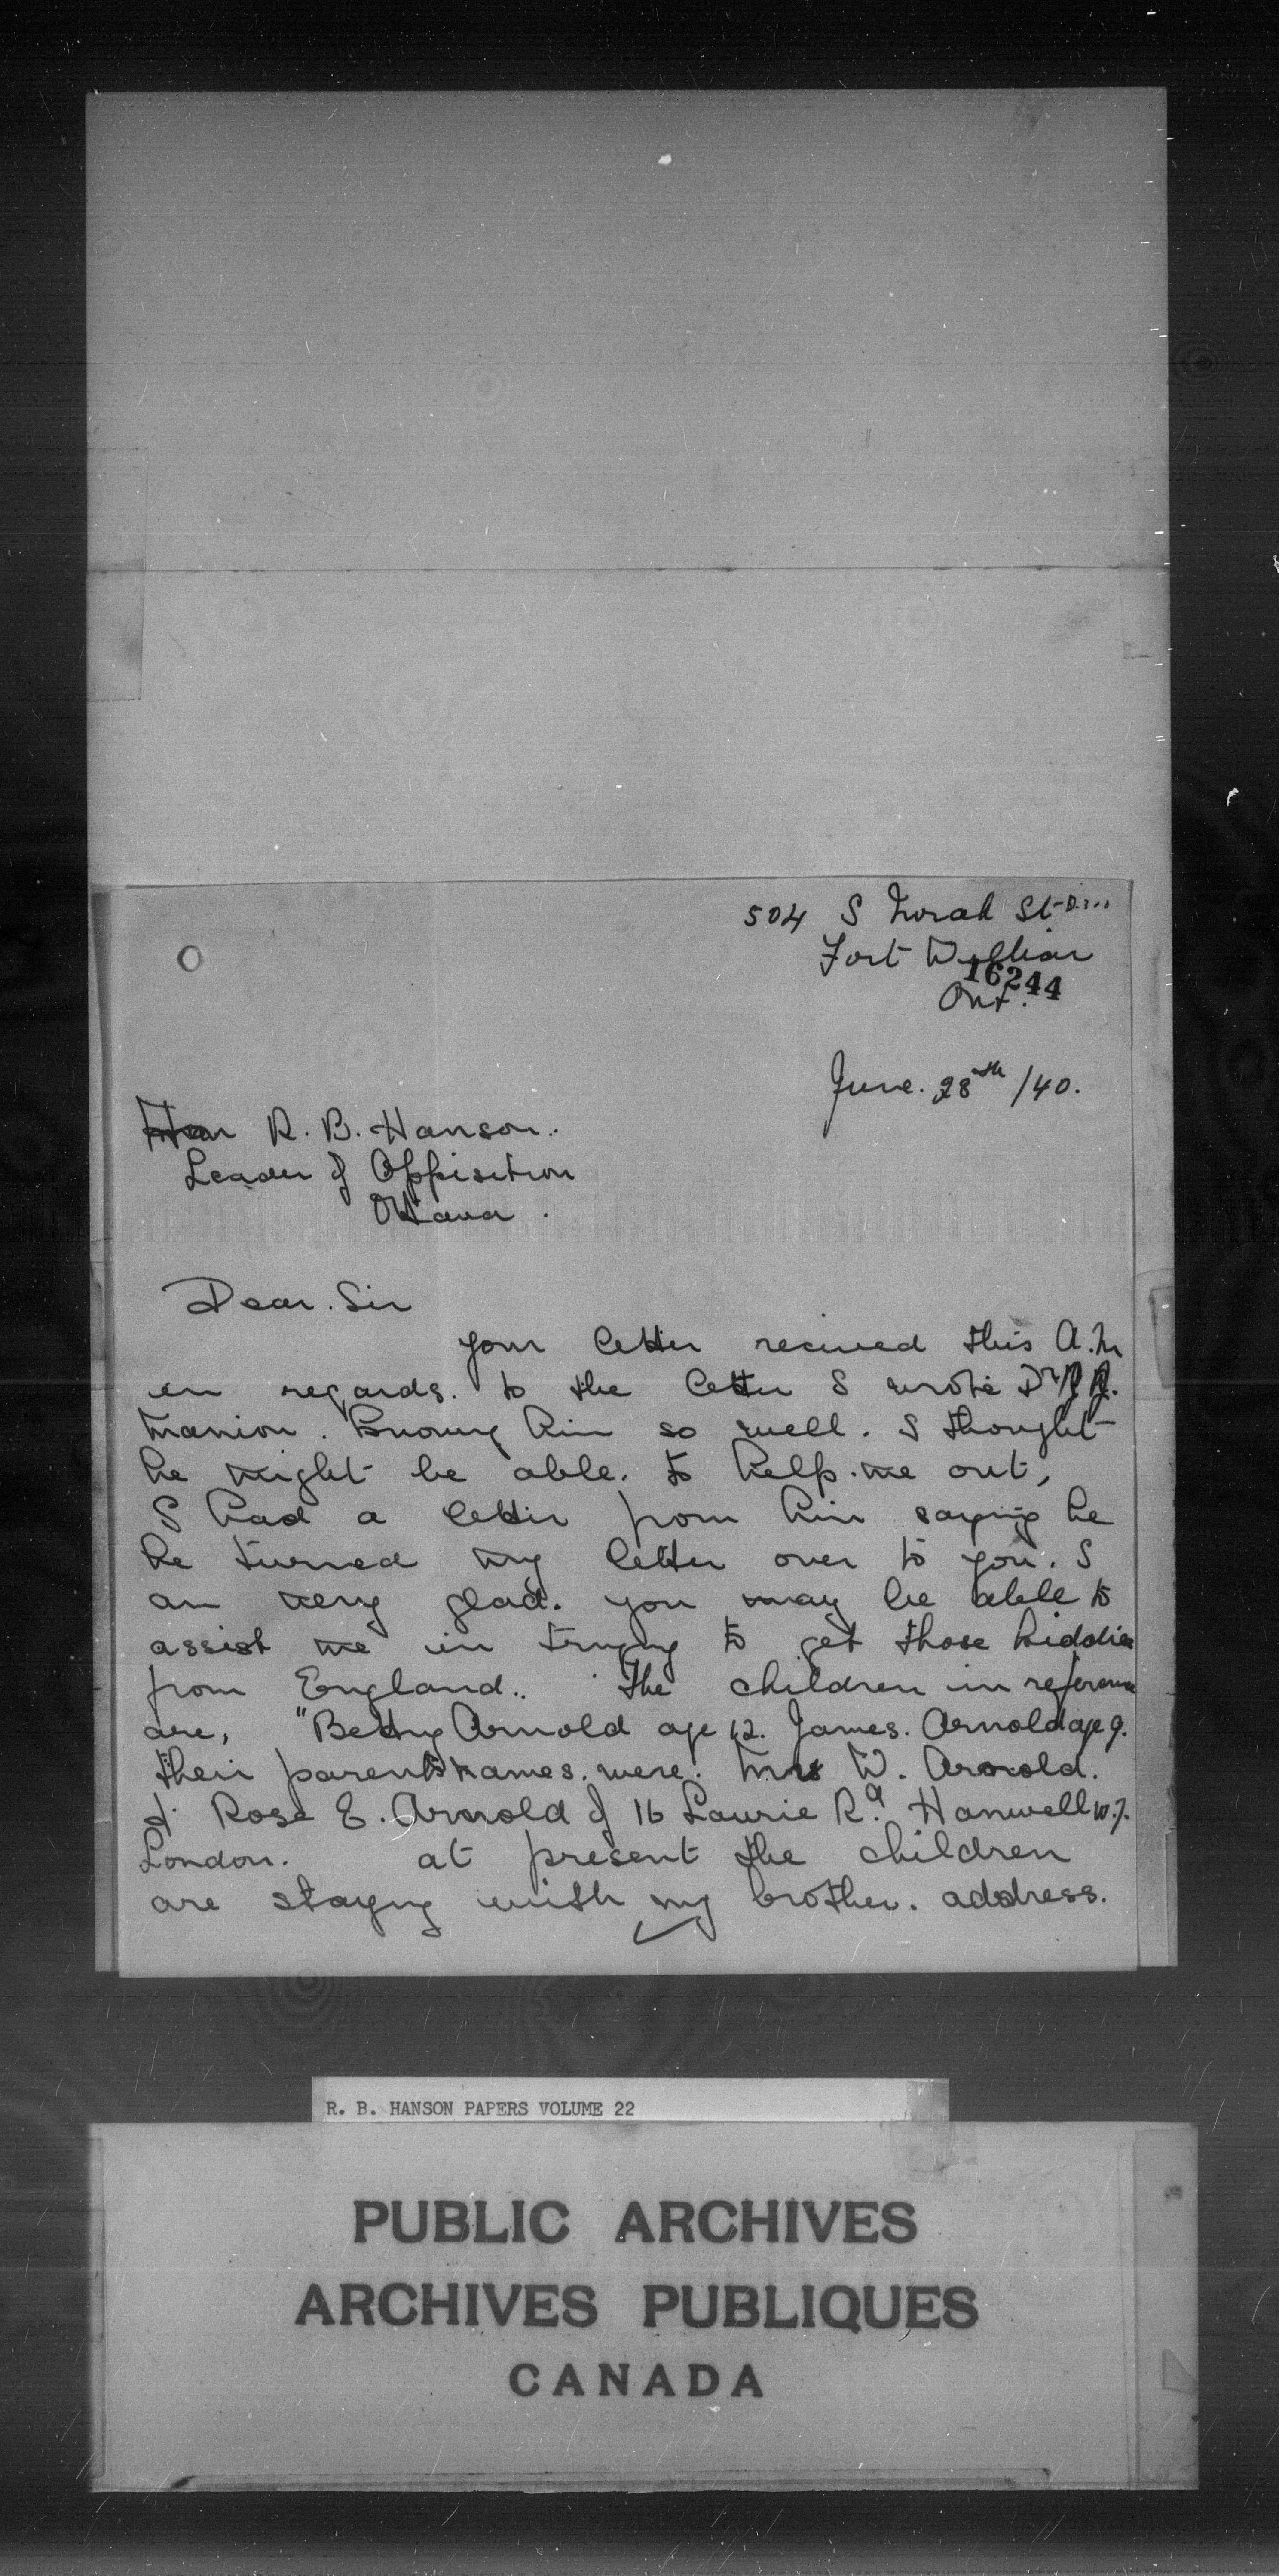 504 S Norah St
Fort William
16244
Ont.
June. 28th /40.
Hon R. B. Hanson.
Leader of Oppisition
Ottawa.
Dear. Sir
your letter recived this A.M
in regards. to the letter I wrote Dr R J.
Manion. Knowing him so well. I thought
he might be able. to help. me out,
I had a letter from him saying he
he turned my letter over to you. I
am very glad. you may be able to
assist me in trying to get those kiddies
from England.. The children in reference
are, "Betty Arnold age 12. James. Arnold age 9.
their parents names. were. Mrs W. Arnold.
& Rose E. Arnold of 16 Laurie Rd Hanwell W.7.
London. at present the children
are staying with my brother. address.
R. B. HANSON PAPERS VOLUME 22
PUBLIC ARCHIVES
ARCHIVES PUBLIQUES
CANADA